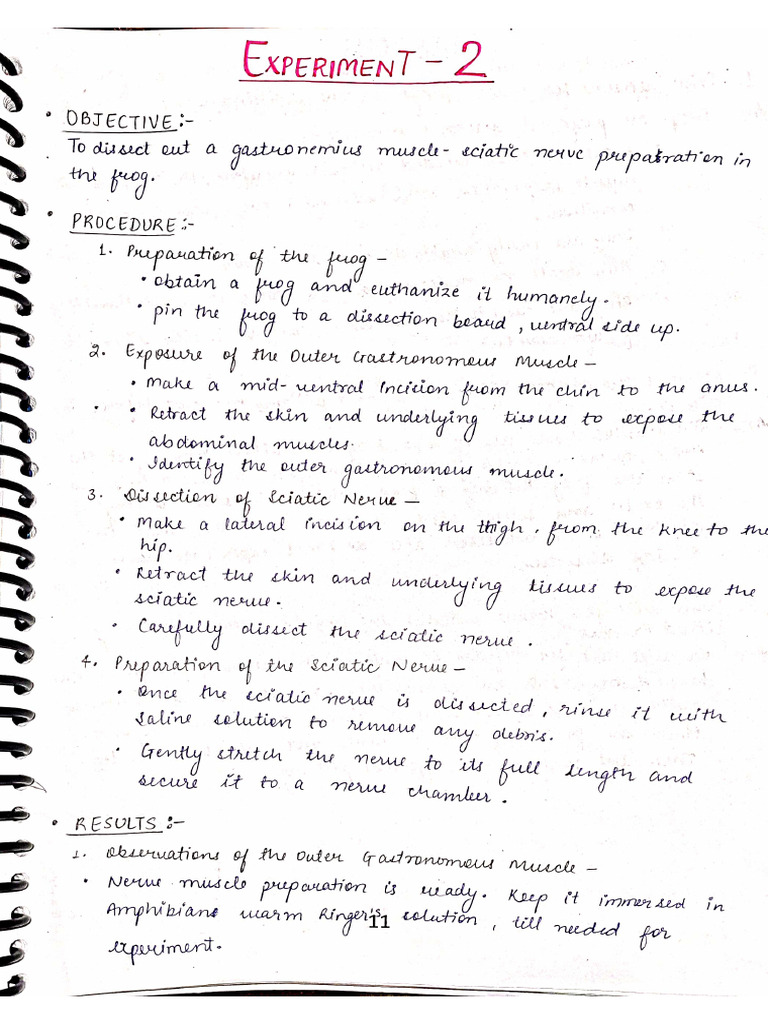 EXPERIMENT - 2
• OBJECTIVE :-
To dissect out a gastronemius muscle - sciatic nerve preparation in
the frog.
• PROCEDURE :-
1. Preparation of the frog -
• Obtain a frog and euthanize it humanely.
• pin the frog to a dissection board, ventral side up.
2. Exposure of the Outer Gastronomous Muscle -
• Make a mid-ventral incision from the chin to the anus.
• • Retract the skin and underlying tissues to expose the
abdominal muscles.
• Identify the outer gastronomous muscle.
3. Dissection of Sciatic Nerve -
• Make a lateral incision on the thigh, from the knee to the
hip.
• Retract the skin and underlying tissues to expose the
sciatic nerve.
• Carefully dissect the sciatic nerve.
4. Preparation of the Sciatic Nerve -
• Once the sciatic nerve is dissected, rinse it with
saline solution to remove any debris.
• Gently stretch the nerve to its full length and
secure it to a nerve chamber.
• RESULTS :-
1. Observations of the Outer Gastronomous Muscle -
• Nerve muscle preparation is ready. Keep it immersed in
Amphibians warm Ringer's solution, till needed for
experiment.
11